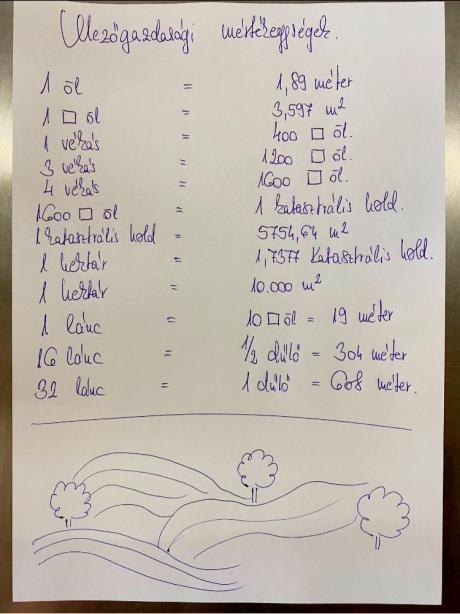 Mezőgazdasági mértékegységek.
1 öl = 1,89 méter
1 □ öl = 3,597 m²
1 vékás = 400 □ öl.
3 vékás = 1200 □ öl.
4 vékás = 1600 □ öl.
1600 □ öl = 1 katasztrális hold.
1 katasztrális hold = 5754,64 m²
1 hektár = 1,7377 katasztrális hold.
1 hektár = 10.000 m²
1 lánc = 10 □ öl = 19 méter
16 lánc = 1/2 dűlő = 304 méter
32 lánc = 1 dűlő = 608 méter.